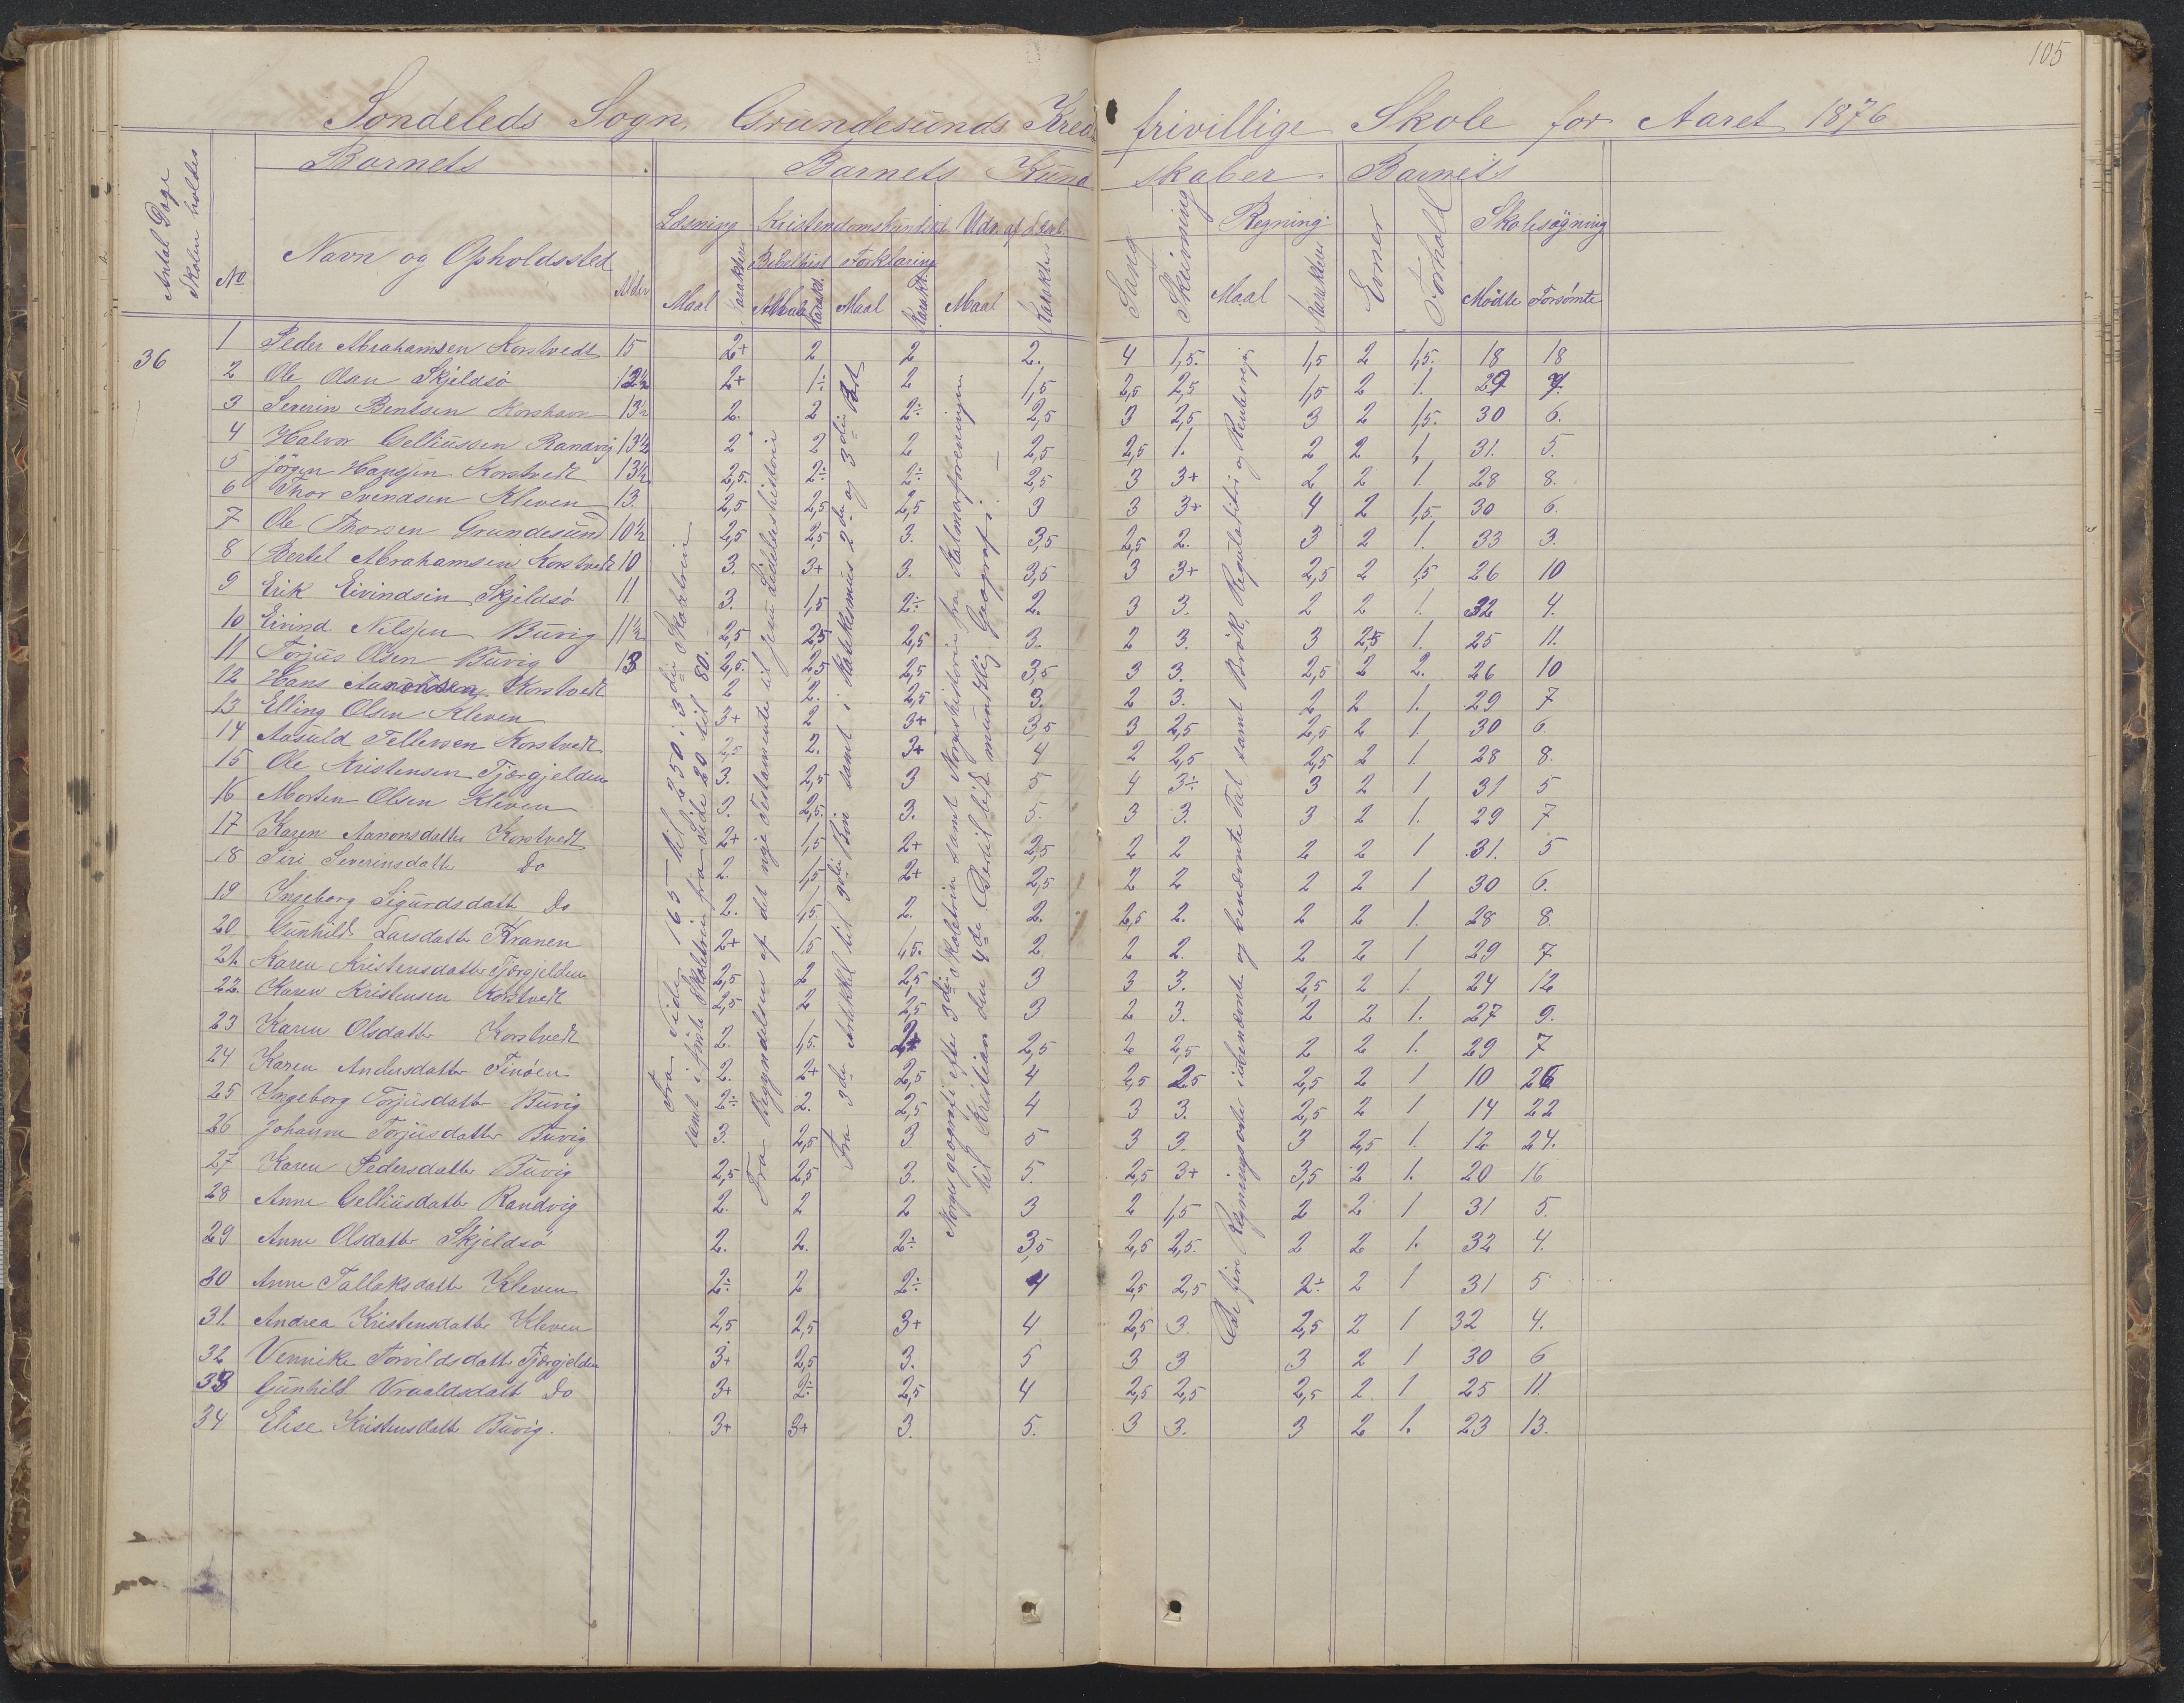 105
Søndeleds Sogn, Gründesünds Kreds frivillige Skole for Aaret 1876
Antal Dage Skolen holdtes
No
Barnets
Navn og Opholdssted
Alder
Barnets Kundskaber.
Læsning
Maal
Karakter
Kristendomskundskab
Bibelhist
Maal
Karakt.
Forklaring
Maal
Karakt.
Udv. af Læseb
Maal
Karakter
Sang
Skrivning
Regning
Maal
Karakter
Barnets
Evner
Forhold
Skolesøgning
Mødte
Forsømte
36
1 Peder Abrahamsen Korstvedt 15 2+ 2 2 2. 4 1,5. 1,5 2 1,5. 18 18
2 Ole Olsen Skjeldsø 12½ 2+ 1÷ 2 1,5 2,5 2,5 1,5 2 1. 29 7.
3 Severin Bentsen Korshavn 13½ 2. 2 2÷ 2,5 3 2,5 3 2 1,5. 30 6.
4 Halvor Gelliüssen Randvig 13½ 2 2 2 2,5 2,5 1. 2 2 1, 31. 5.
5 Jørgen Hanssen Korstvedt 13½ 2,5. 2÷ 2÷ 2,5 3 3+ 2 2 1. 28 8.
6 Thor Svendsen Kleven 13. 2,5 2,5 2,5 3 3 3+ 4 2 1,5. 30 6.
7 Ole Thorsen Gründesünd 10½ 2,5 2,5 3. 3,5 2,5 2. 3 2 1. 33 3.
8 Bertel Abrahamsen Korstvedt 10 3. 3+ 3. 3,5 3 3+ 2,5 2 1,5 26 10
9 Erik Eivindsen Skjeldsø 11. 3. 1,5 2÷ 2. 3 3. 2 2 1. 32 4.
10 Eivind Nilssen Büvig 11½ 2,5 2,5 2,5 3. 2 3. 3 2,5 1. 25 11.
11 Torjüs Olsen Büvig 13 2,5. 2,5 2,5 3,5 3 3. 2,5 2 2. 26 10
12 Hans Aanonsen Korstvedt 2 2. 2,5 3. 2 3. 2 2 1. 29 7
13 Elling Olsen Kleven 3+ 2 3+ 3,5 3 2,5 2,5 2 1. 30 6.
14 Aasuld Tellevsen Korstvedt 2,5 2. 3+ 4 2 2,5 2,5 2 1 28 8.
15 Ole Kristensen Tjørgjelden 3. 2,5 3 5 4 3÷ 3 2 1 31 5
16 Morten Olsen Kleven 3. 2,5. 3. 5. 3 3. 3 2 1. 29 7
17 Karen Aanonsdatter Korstvedt 2+ 1,5 2+ 2,5 2 2 2 2 1 31. 5
18 Siri Severinsdatt Do 2. 1,5 2+ 2,5 2 2 2 2 1 30 6.
19 Ingeborg Sigurdsdatt Do 2. 1,5. 2. 2. 2,5 2. 2 2 1. 28 8.
20 Günhild Larsdatter Kranen 2+ 1,5 1,5. 2 2 2. 2 2 1 29 7
21. Karen Kristensdatter Tjørgjelden 2,5 2 2,5 3 3 3. 2,5 2 1. 24 12
22. Karen Kristensen Korstvedt 2,5 2 2,5 3 2 3. 2 2 1. 27 9.
23 Karen Olsdatter Korstvedt 2. 1,5. 2+ 2,5 2 2,5 2 2 1. 29 7
24 Karen Andersdatter Finøen 2. 2+ 2,5 4 2,5 2,5 2,5 2 1 10 26
25 Ingeborg Torjüsdatt Büvig 2÷ 2. 2,5 4 3 3. 2,5 2 1 14 22
26 Johanne Torjüsdatter Büvig 3. 2,5 3 5 3 3. 3 2,5 1. 12 24.
27 Karen Pedersdatter Büvig 2,5 2,5 3. 5. 2,5 3+ 3,5 2 1. 20 16
28 Anne Gelliüsdatter Randvig 2. 2 2 3 2 1,5 2 2 1 31 5.
29 Anne Olsdatter Skjeldsø 2. 2. 2÷ 3,5 2,5 2,5. 2 2 1. 32 4.
30 Anne Tallaksdatt Kleven 2÷ 2 2÷ 4 2,5 2,5 2÷ 2 1 31 5
31. Andrea Kristensdatter Kleven 2,5 2,5 3+ 4 2,5 3 2,5 2 1 32 4.
32 Vennike Torvildsdatt Tjørgjelden 3+ 2,5 3. 5 3 3 3 2 1 30 6
33 Günhild Vraaldsdatt Do 3+ 2÷ 2,5 4 2,5 2,5 2,5 2 1 25 11.
34 Elise Kristensdatt Büvig. 3+ 3+ 3. 5. 3 3. 3 2 1. 23 13.
Fra Side 165 til 250 i 3die Skoletrin
samt i første Skoletrin fra Side 20 til 80.
Fra Begyndelsen af det nye Testamente til Jesu Lidelseshistorie
Fra 3die Artikkel til 9die Bøn samt i Katekismus 2den og 3die Part
Norges geografi efter 3die Skoletrin samt Norgeshistorie fra Kalmarforeningen
til Kristian den 4de. Bertil bibl mundtlig Geografi.
De fire Regningsarter i ubenævnte og benævnte Tal, samt Brøk, Regulatetri og Rentesregn